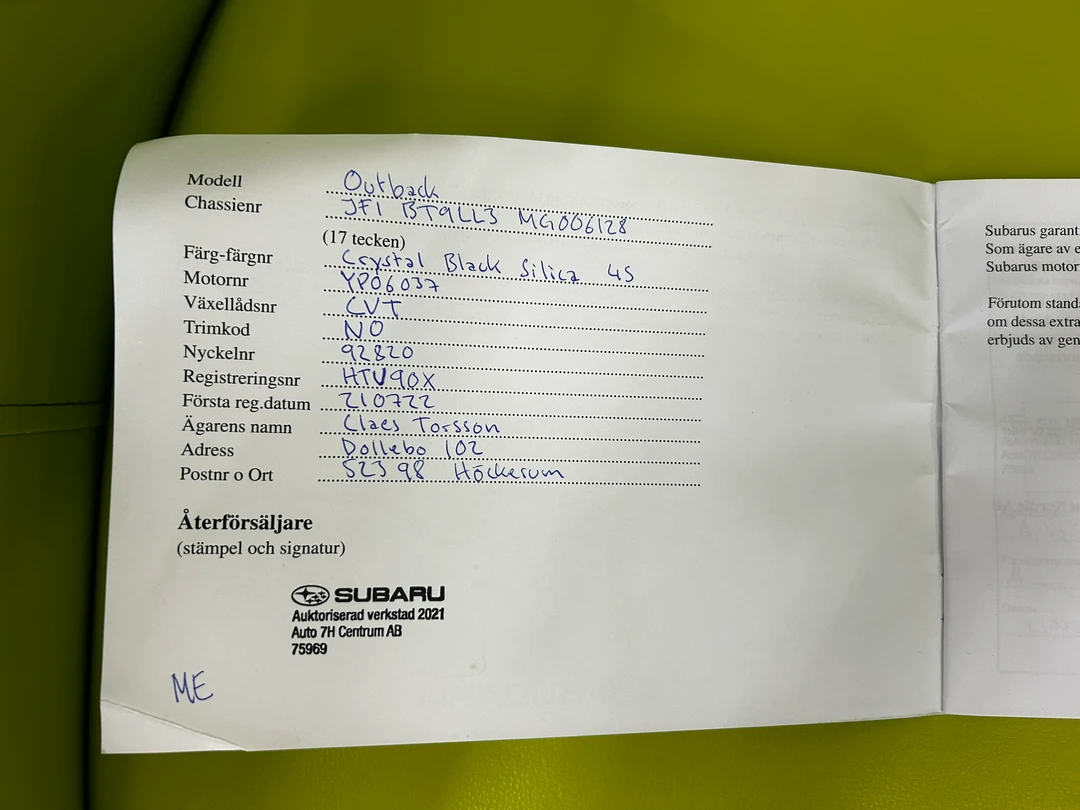 Modell Outback
Chassienr JF1 BT9LL3 MG006128
(17 tecken)
Färg-färgnr Crystal Black Silica 4S
Motornr YP06037
Växellådsnr CVT
Trimkod NO
Nyckelnr 92820
Registreringsnr HTU90X
Första reg.datum 210722
Ägarens namn Claes Torsson
Adress Dollebo 102
Postnr o Ort 523 98 Höckerum
Återförsäljare
(stämpel och signatur)
SUBARU
Auktoriserad verkstad 2021
Auto 7H Centrum AB
75969
ME
Subarus garant
Som ägare av e
Subarus motor
Förutom stand
om dessa extra
erbjuds av gen